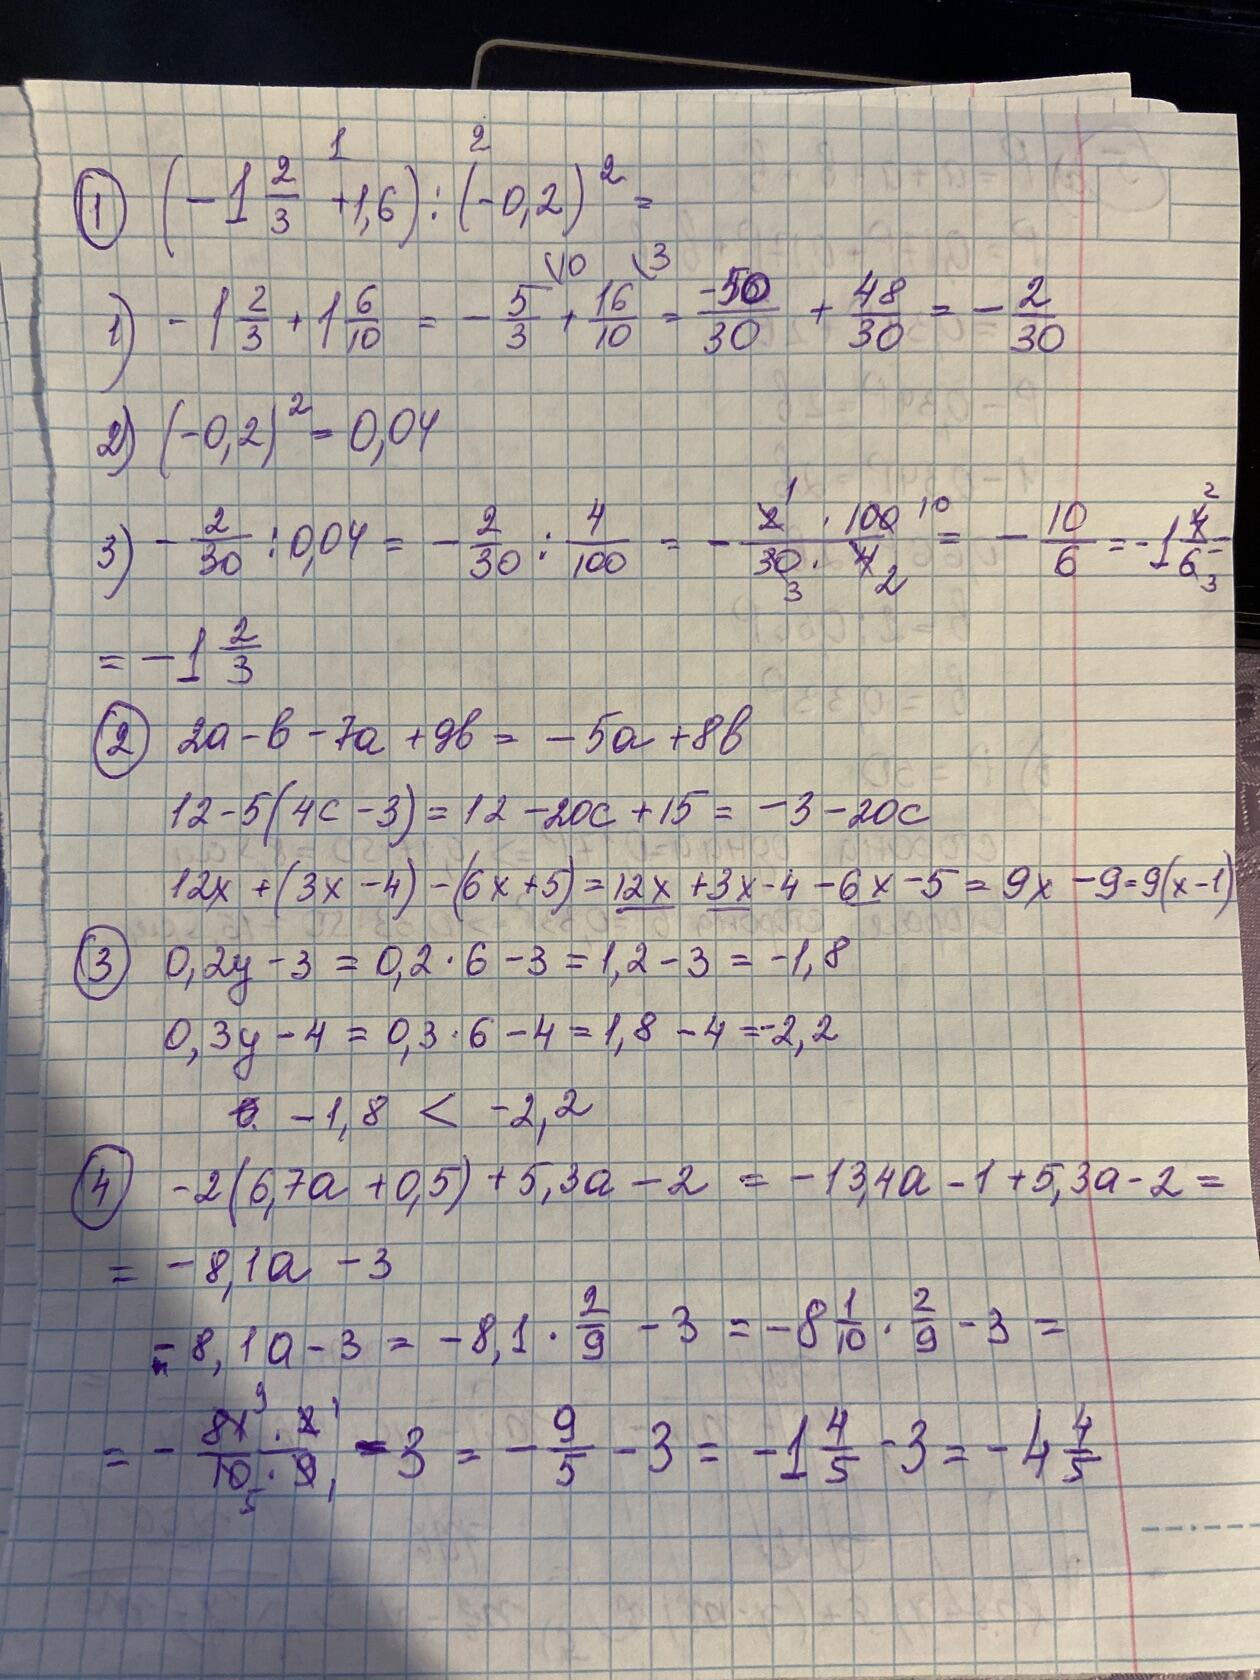 1 2
① (-1 2/3 + 1,6) : (-0,2)² =
1) -1 2/3 + 1 6/10 = - 5/3 \10 + 16/10 \3 = -50/30 + 48/30 = - 2/30
2) (-0,2)² = 0,04
3) - 2/30 : 0,04 = - 2/30 : 4/100 = - 2 1 · 100 10 / 30 3 · 4 2 = - 10/6 = -1 4 2/6 3 =
= -1 2/3
② 2a - b - 7a + 9b = -5a + 8b
12 - 5(4c - 3) = 12 - 20c + 15 = -3 - 20c
12x + (3x - 4) - (6x + 5) = 12x + 3x - 4 - 6x - 5 = 9x - 9 = 9(x - 1)
③ 0,2y - 3 = 0,2 · 6 - 3 = 1,2 - 3 = -1,8
0,3y - 4 = 0,3 · 6 - 4 = 1,8 - 4 = -2,2
-1,8 < -2,2
④ -2(6,7a + 0,5) + 5,3a - 2 = -13,4a - 1 + 5,3a - 2 =
= -8,1a - 3
-8,1a - 3 = -8,1 · 2/9 - 3 = -8 1/10 · 2/9 - 3 =
= - 81 9 · 2 1 / 10 5 · 9 1 - 3 = - 9/5 - 3 = -1 4/5 - 3 = -4 4/5